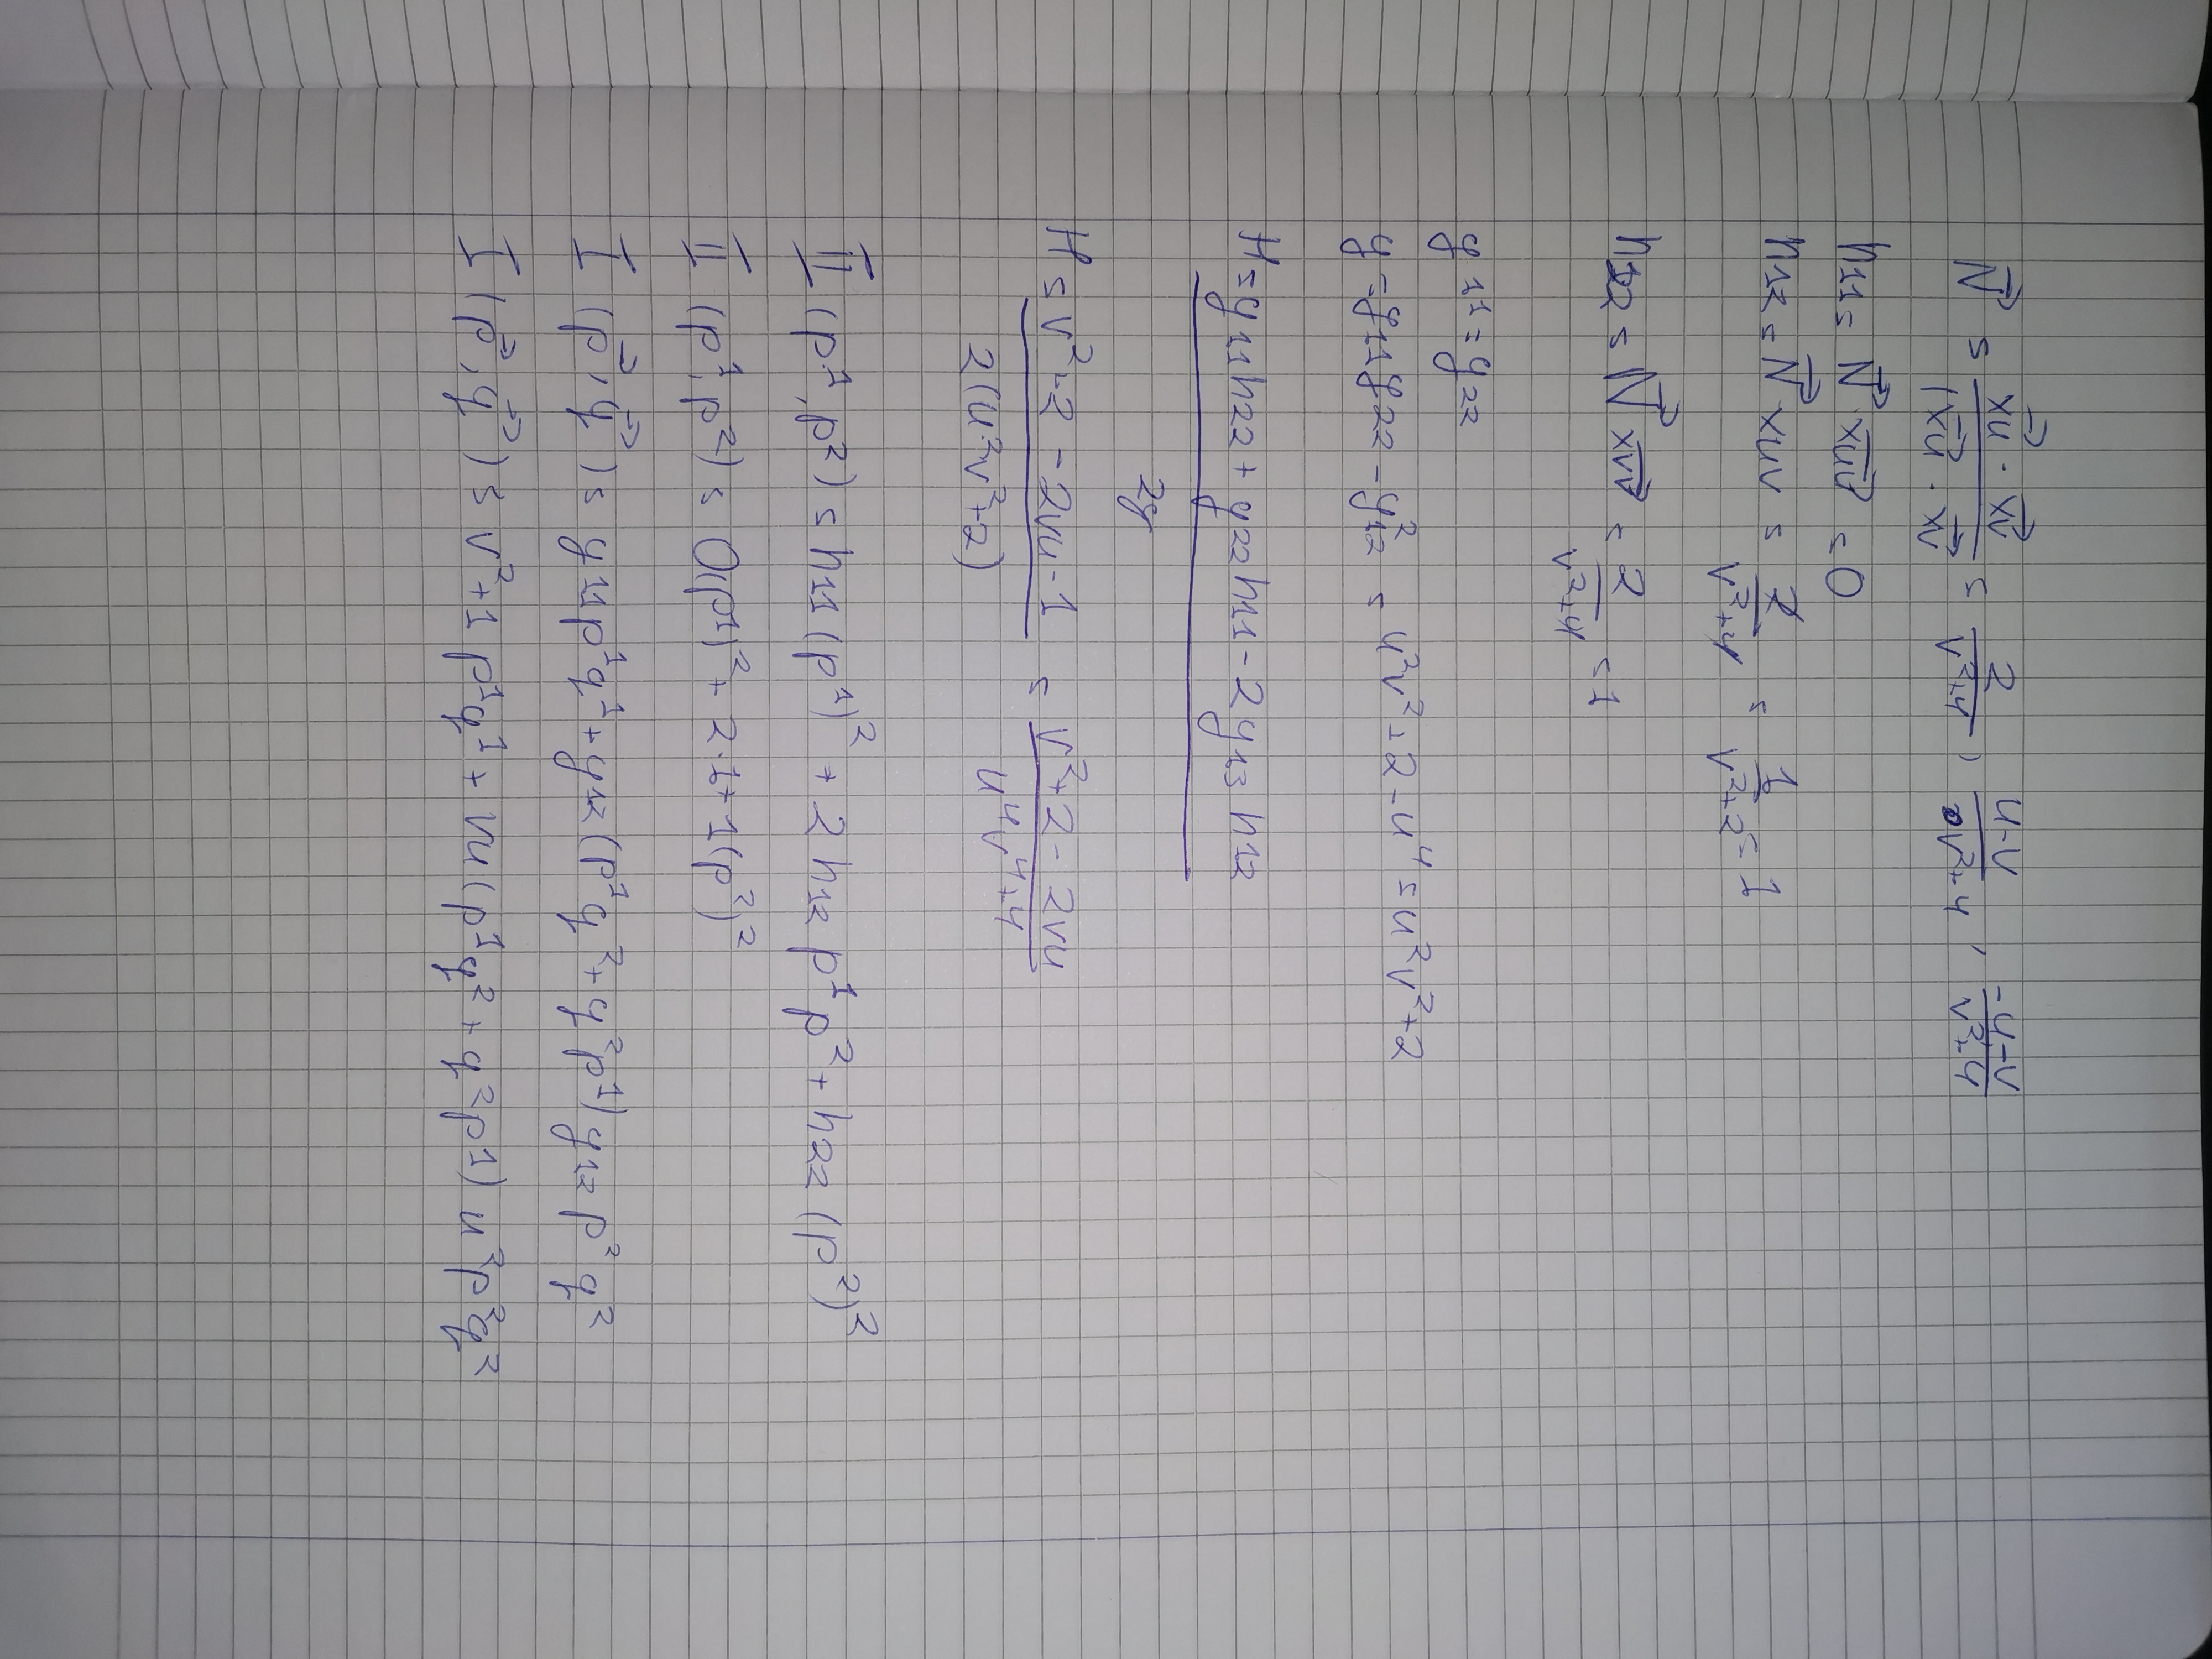 N⃗ = (x⃗u · x⃗v)/(|x⃗u · x⃗v) = 2/(v²+4), (u-v)/(v²+4), (-u-v)/(v²+4)
h11 = N⃗ x⃗uu = 0
h12 = N⃗ xuv = 2/(v²+4) = 1/(v²+2) = 1
h22 = N⃗ x⃗vv = 2/(v²+4) = 1
g11 = g22
g = g11g22 - g12² = u²v²+2-u⁴ = u²v²+2
H = (g11h22 + g22h11 - 2g13 h12)/(2g)
H = (v²+2 - 2vu-1)/(2(u²v²+2)) = (v²+2 - 2vu)/(u⁴v⁴+4)
II (p¹, p²) = h11 (p¹)² + 2 h12 p¹ p² + h22 (p²)²
II (p¹, p²) = 0(p1)² + 2·1+1(p²)²
I (p⃗, q⃗) = g11p¹q¹ + g12 (p¹q² + q²p¹) g12 p² q²
I (p⃗, q⃗) = v²+1 p¹q¹ + vu (p¹q² + q²p1) u²p²q²